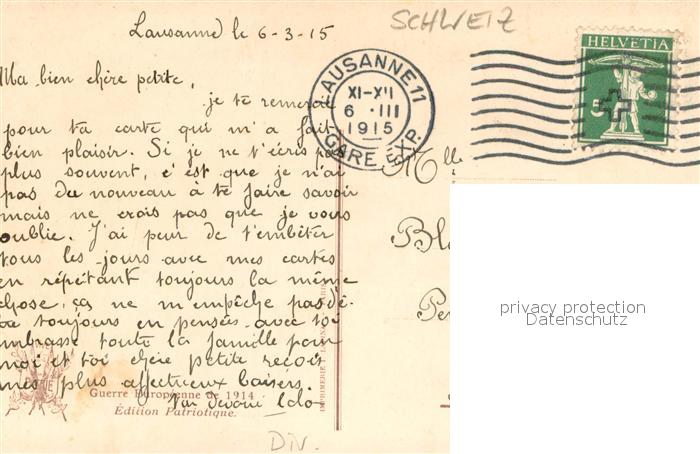 Lausanne le 6-3-15
SCHWEIZ
Ma bien chère petite,
je te remercie
pour ta carte qui m'a fait
bien plaisir. Si je ne t'écris pas
plus souvent, c'est que je n'ai
pas du nouveau à te faire savoir
mais ne crois pas que je vous
oublie. J'ai peur de t'embêter
tous les jours avec mes cartes
en répétant toujours la même
chose, ça ne m'empêche pas d'ê-
tre toujours en pensée avec toi
embrasse toute la famille pour
moi et toi chère petite reçois
mes plus affectueux baisers.
Guerre Européenne de 1914
Édition Patriotique.
LAUSANNE 11
XI-XII
6 . III
1915
GARE EXP.
HELVETIA
5
Mlle
Bl
Pe
privacy protection
Datenschutz
DIV.